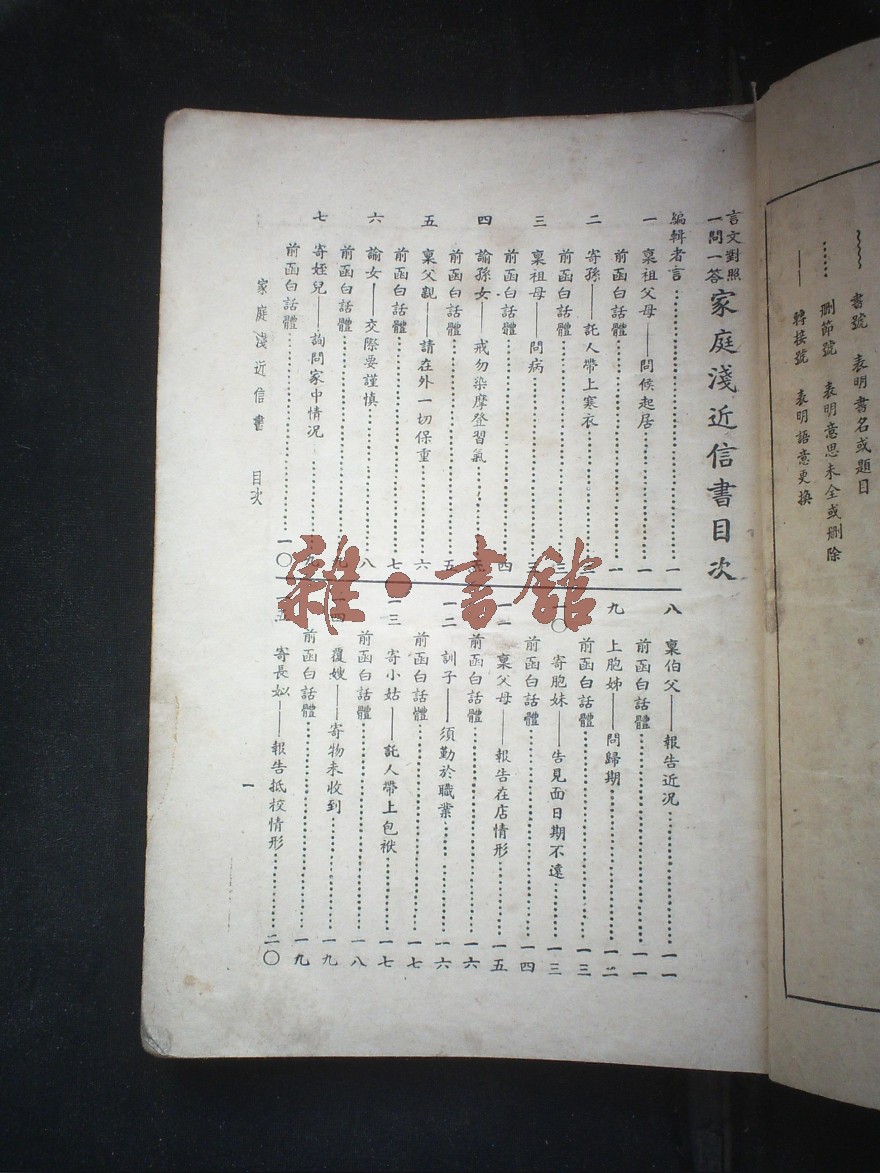 書號　表明書名或題目
……　刪節號　表明意思未全或刪除
——　轉接號　表明語意更換
言文對照
一問一答
家庭淺近信書目次
編輯者言……一
一　稟祖父母——問候起居……一
前函白話體……一
二　寄孫——託人帶上寒衣……二
前函白話體……三
三　稟祖母——問病……三
前函白話體……四
四　諭孫女——戒勿染摩登習氣……五
前函白話體……五
五　稟父親——請在外一切保重……六
前函白話體……七
六　諭女——交際要謹慎……八
前函白話體……九
七　寄姪兒——詢問家中情況……九
前函白話體……一〇
八　稟伯父——報告近況……一一
前函白話體……一一
九　上胞姊——問歸期……一二
前函白話體……一三
一〇　寄胞妹——告見面日期不遠……一三
前函白話體……一四
一一　稟父母——報告在店情形……一五
前函白話體……一六
一二　訓子——須勤於職業……一六
前函白話體……一七
一三　寄小姑——託人帶上包袱……一七
前函白話體……一八
一四　覆嫂——寄物未收到……一九
前函白話體……一九
一五　寄長姒——報告抵校情形……二〇
家庭淺近信書　目次
一
雜·書館